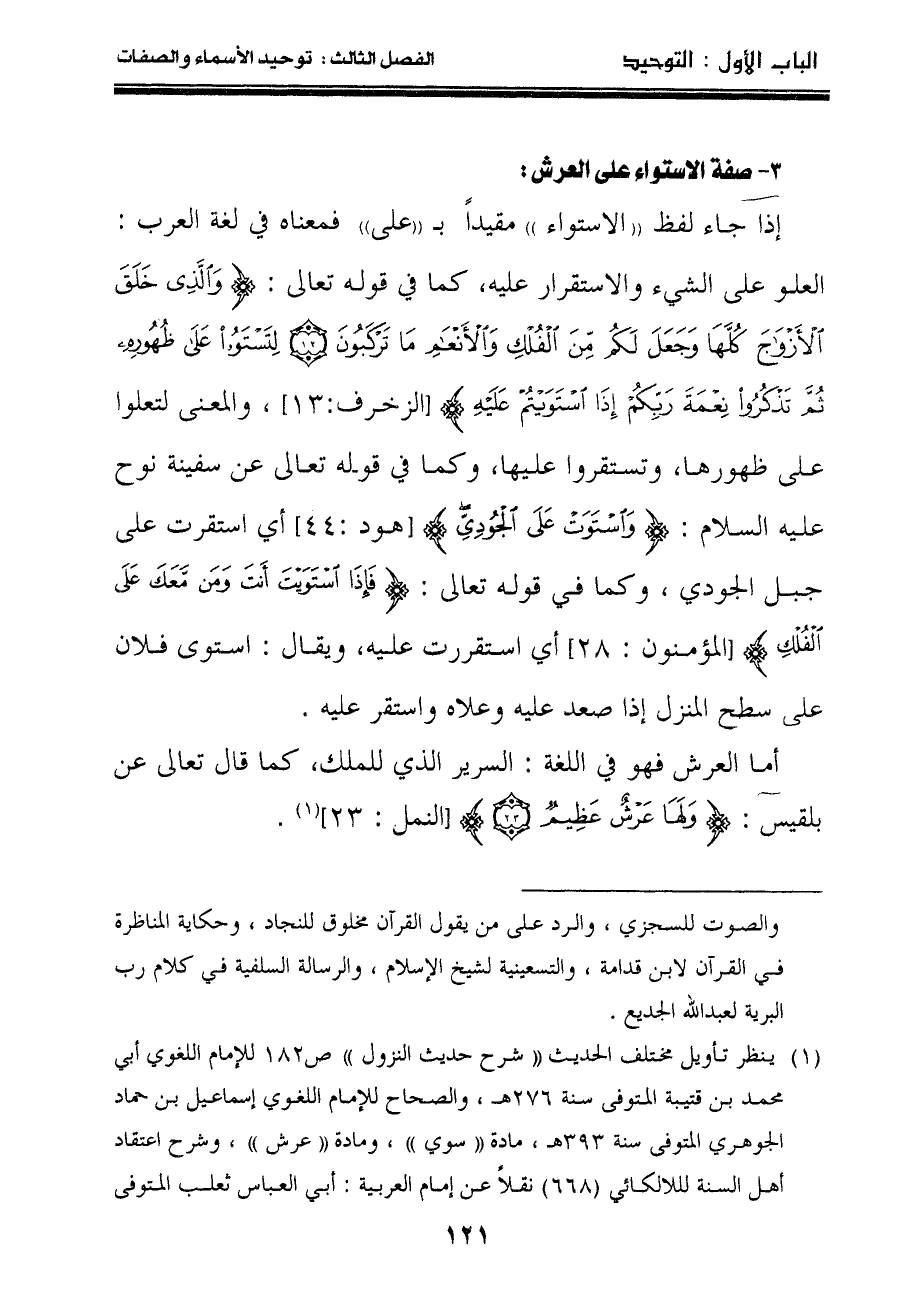 الباب الأول : التوحيد
الفصل الثالث : توحيد الأسماء والصفات
٣- صفة الاستواء على العرش :
إذا جاء لفظ ((الاستواء)) مقيداً بـ ((على)) فمعناه في لغة العرب :
العلو على الشيء والاستقرار عليه، كما في قوله تعالى : ﴿ وَٱلَّذِى خَلَقَ
ٱلْأَزْوَٰجَ كُلَّهَا وَجَعَلَ لَكُم مِّنَ ٱلْفُلْكِ وَٱلْأَنْعَٰمِ مَا تَرْكَبُونَ ۝١٢ لِتَسْتَوُۥا۟ عَلَىٰ ظُهُورِهِۦ
ثُمَّ تَذْكُرُوا۟ نِعْمَةَ رَبِّكُمْ إِذَا ٱسْتَوَيْتُمْ عَلَيْهِ ﴾ [الزخرف:١٣] ، والمعنى لتعلوا
على ظهورها، وتستقروا عليها، وكما في قوله تعالى عن سفينة نوح
عليه السلام : ﴿ وَٱسْتَوَتْ عَلَى ٱلْجُودِىِّۖ ﴾ [هود :٤٤] أي استقرت على
جبل الجودي ، وكما في قوله تعالى : ﴿ فَإِذَا ٱسْتَوَيْتَ أَنتَ وَمَن مَّعَكَ عَلَى
ٱلْفُلْكِ ﴾ [المؤمنون : ٢٨] أي استقررت عليه، ويقال : استوى فلان
على سطح المنزل إذا صعد عليه وعلاه واستقر عليه .
أما العرش فهو في اللغة : السرير الذي للملك، كما قال تعالى عن
بلقيس : ﴿ وَلَهَا عَرْشٌ عَظِيمٌ ۝٢٣ ﴾ [النمل : ٢٣](١) .
والصوت للسجزي ، والرد على من يقول القرآن مخلوق للنجاد ، وحكاية المناظرة
في القرآن لابن قدامة ، والتسعينية لشيخ الإسلام ، والرسالة السلفية في كلام رب
البرية لعبدالله الجديع .
(١) ينظر تأويل مختلف الحديث (( شرح حديث النزول )) ص١٨٢ للإمام اللغوي أبي
محمد بن قتيبة المتوفى سنة ٢٧٦هـ ، والصحاح للإمام اللغوي إسماعيل بن حماد
الجوهري المتوفى سنة ٣٩٣هـ ، مادة (( سوي )) ، ومادة (( عرش )) ، وشرح اعتقاد
أهل السنة لللالكائي (٦٦٨) نقلاً عن إمام العربية : أبي العباس ثعلب المتوفى
١٢١